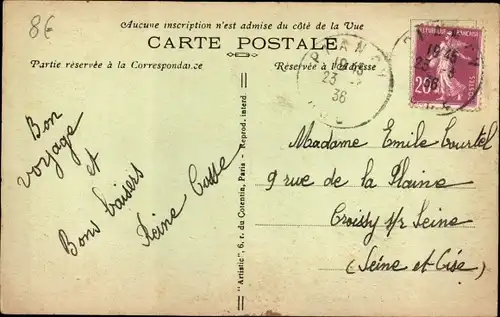 8€
Aucune inscription n'est admise du côté de la Vue
CARTE POSTALE
Partie réservée à la Correspondance
Réservée à l'Adresse
19 45
23
36
RÉPUBLIQUE FRANÇAISE
20c
POSTES
Bon
voyage
et
Bons baisers
Reine
"Artistic", 6, r. du Cotentin, Paris - Reprod. interd
Madame Emile Courtel
9 rue de la Plaine
Croissy s/r Seine
(Seine et Oise)